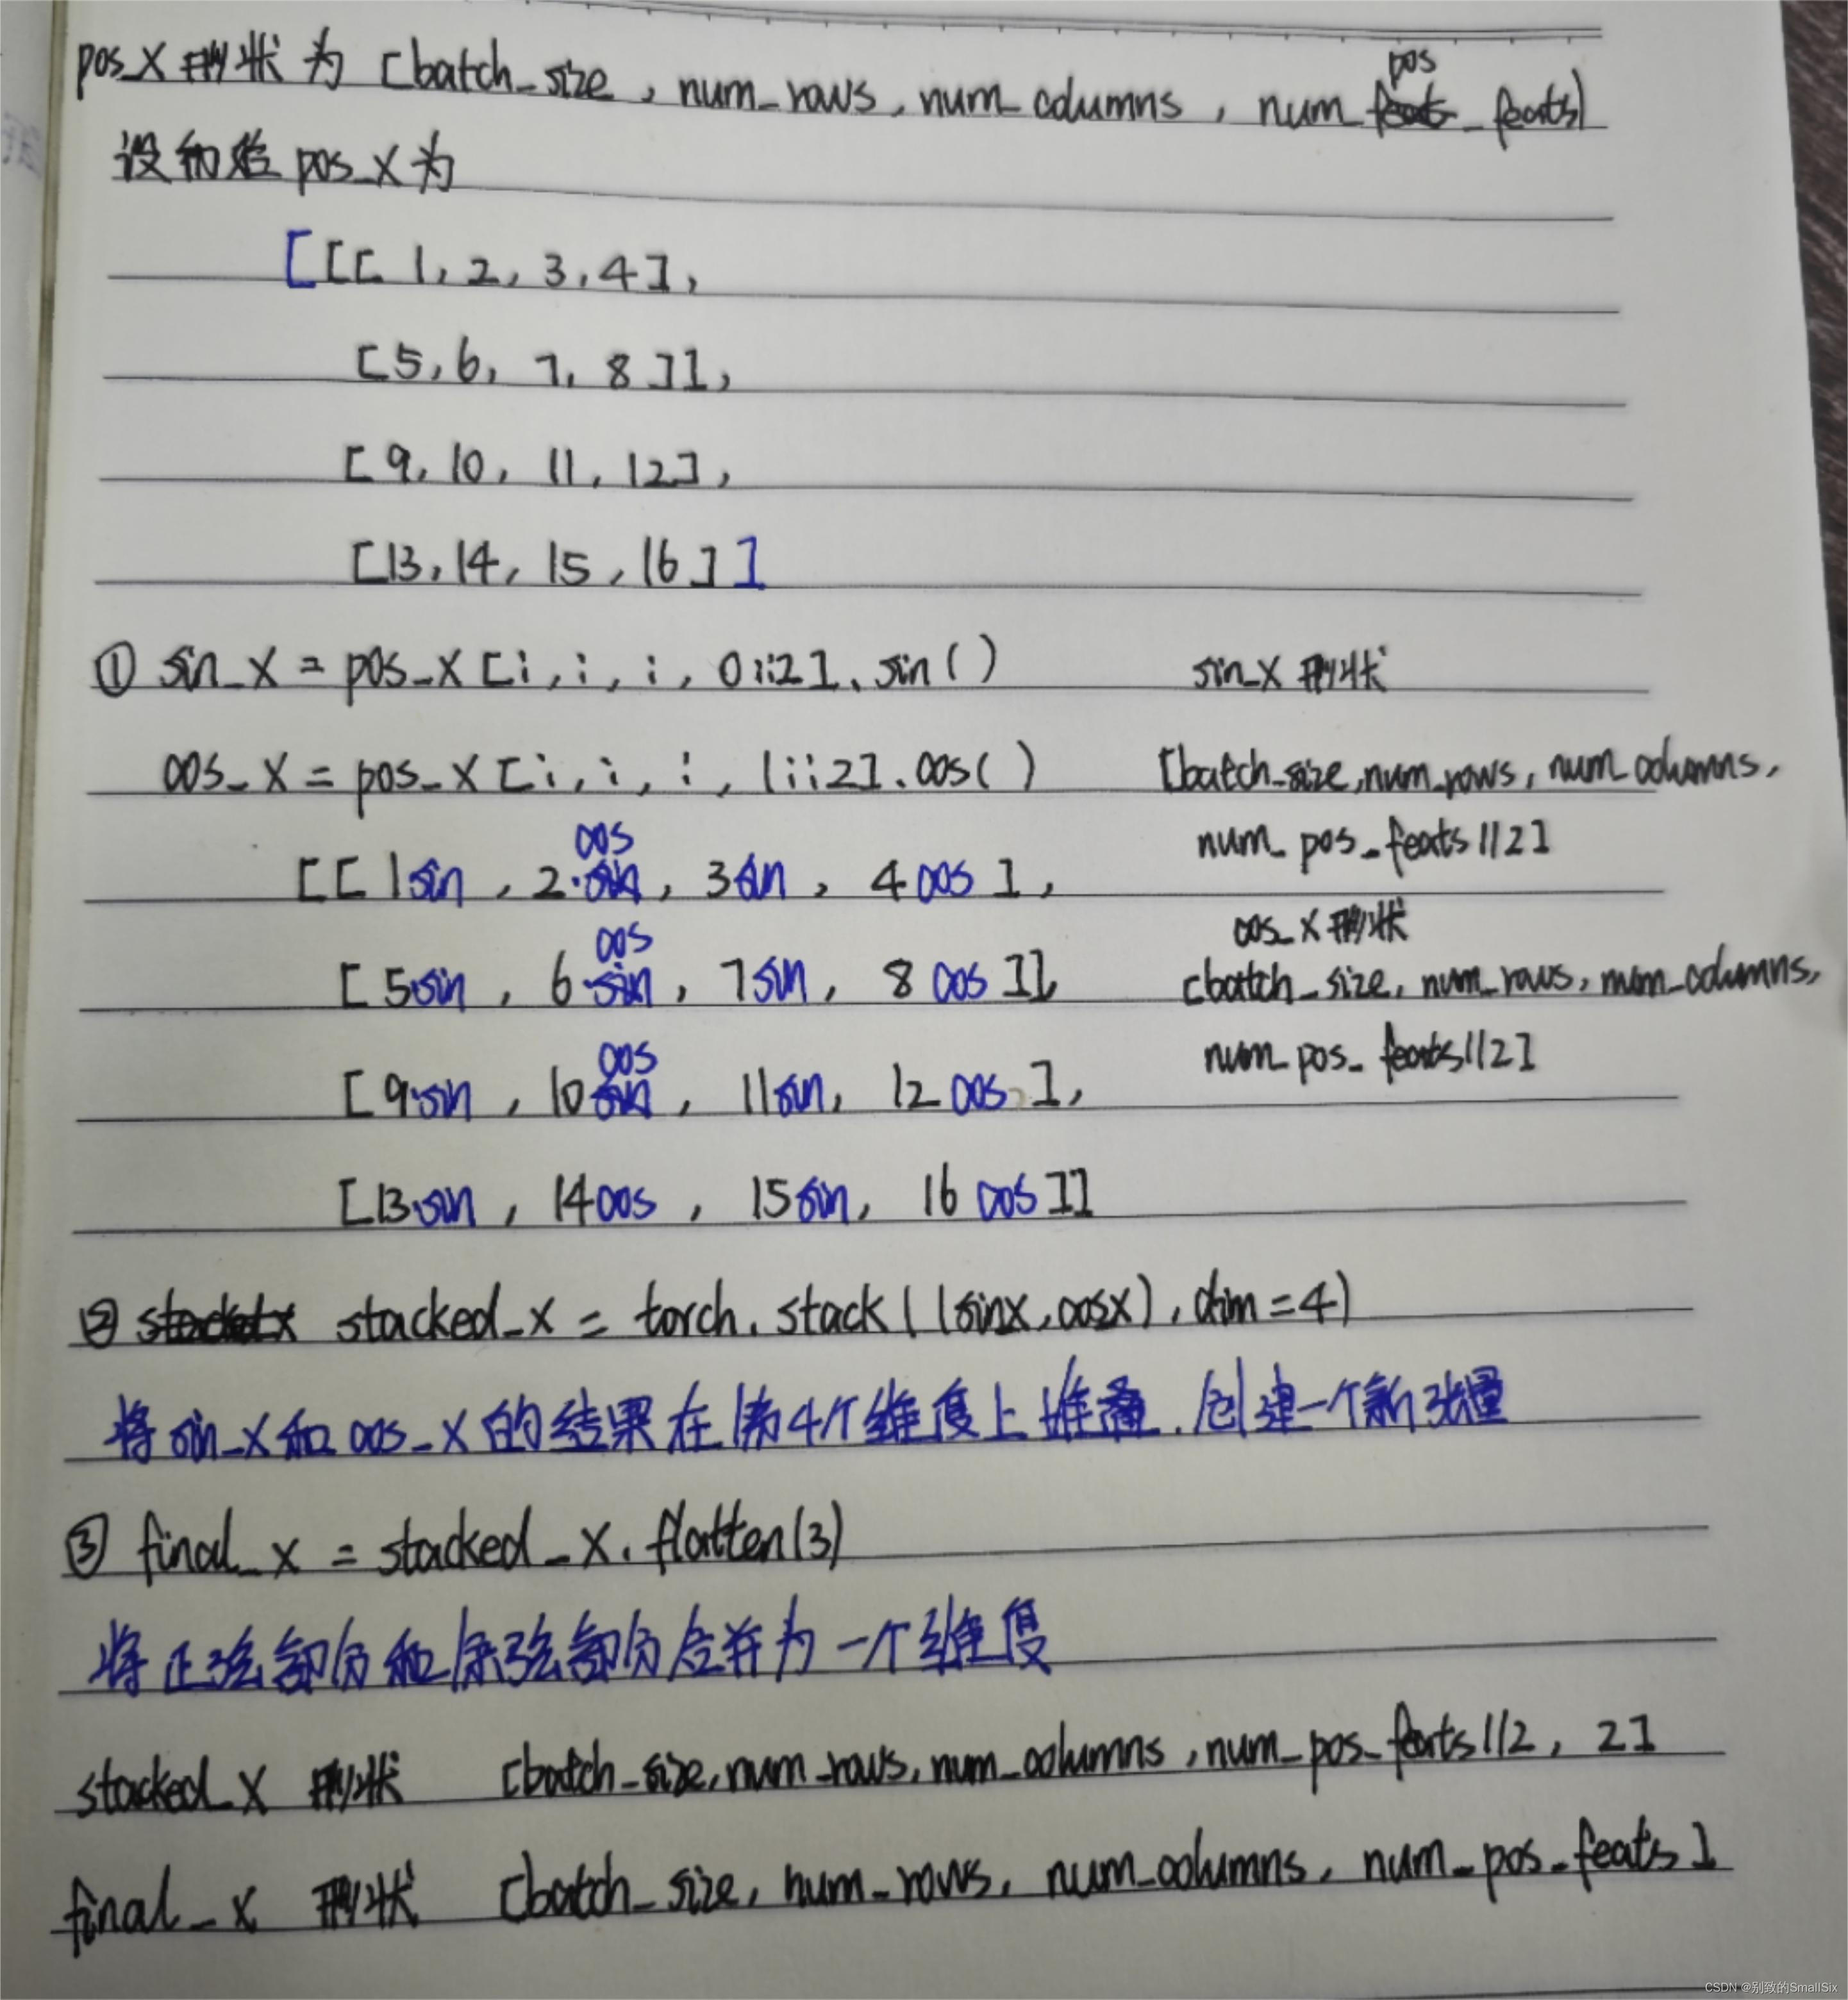 pos_x 形状为 [batch_size, num_rows, num_columns, num_pos_feats]
设初始 pos_x为
[[[ 1, 2, 3, 4],
[5, 6, 7, 8]],
[9, 10, 11, 12],
[13, 14, 15, 16]]
① sin_x = pos_x[:, :, :, 0::2].sin()
sin_x 形状
cos_x = pos_x[:, :, :, 1::2].cos()
[batch_size, num_rows, num_columns,
num_pos_feats//2]
[[ 1sin, 2cos, 3sin, 4cos],
cos_x 形状
[5sin, 6cos, 7sin, 8cos]],
[batch_size, num_rows, num_columns,
num_pos_feats//2]
[9sin, 10cos, 11sin, 12cos],
[13sin, 14cos, 15sin, 16cos]]
② stacked_x = torch.stack((sinx, cosx), dim=4)
将sin_x和cos_x的结果在第4个维度上堆叠.创建一个新张量
③ final_x = stacked_x.flatten(3)
将正弦部分和余弦部分合并为一个维度
stacked_x 形状 [batch_size, num_rows, num_columns, num_pos_feats//2, 2]
final_x 形状 [batch_size, num_rows, num_columns, num_pos_feats]
CSDN @别致的SmallSix